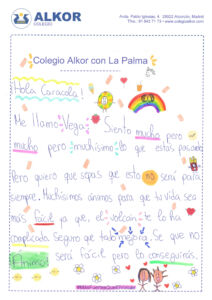 ALKOR
COLEGIO
Avda. Pablo Iglesias, 4. 28922 Alcorcón, Madrid
www.colegioalkor.com
Colegio Alkor con La Palma
Hola Caracola!
Me llamo Vega. Siento mucho pero
mucho pero muchísimo lo que estás pasando
Pero quiero que sepas que esto no será para
siempre. Muchísimos ánimos para que tu vida sea
más fácil ya que, el volcán te lo ha
complicado. Seguro que todo mejora. Se que no
Ánimo! será fácil pero lo conseguirás.